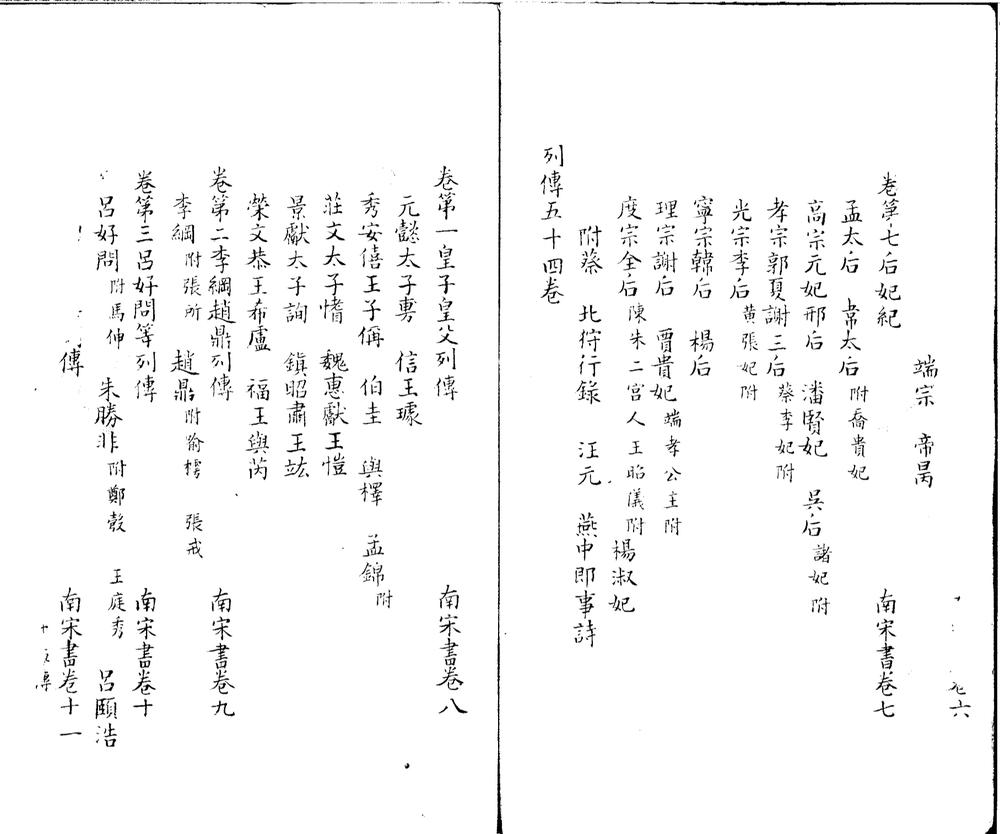 卷六
端宗　帝昺
卷第七后妃紀　南宋書卷七
孟太后　韋太后附喬貴妃
高宗元妃邢后　潘賢妃　吳后諸妃附
孝宗郭夏謝三后蔡李妃附
光宗李后黃張妃附
寧宗韓后　楊后
理宗謝后　賈貴妃端孝公主附
度宗全后陳朱二宮人王昭儀附　楊淑妃
附蔡　北狩行錄　汪元　燕中即事詩
列傳五十四卷
卷第一皇子皇父列傳　南宋書卷八
元懿太子旉　信王璩
秀安僖王子偁　伯圭　與檡　孟錦附
莊文太子愭　魏惠獻王愷
景獻太子詢　鎮昭肅王竑
榮文恭王希盧　福王與芮
卷第二李綱趙鼎列傳　南宋書卷九
李綱附張所　趙鼎附喻樗　張戒
卷第三呂好問等列傳　南宋書卷十
呂好問附馬伸　朱勝非附鄭瑴　王庭秀　呂頤浩
傳　南宋書卷十一